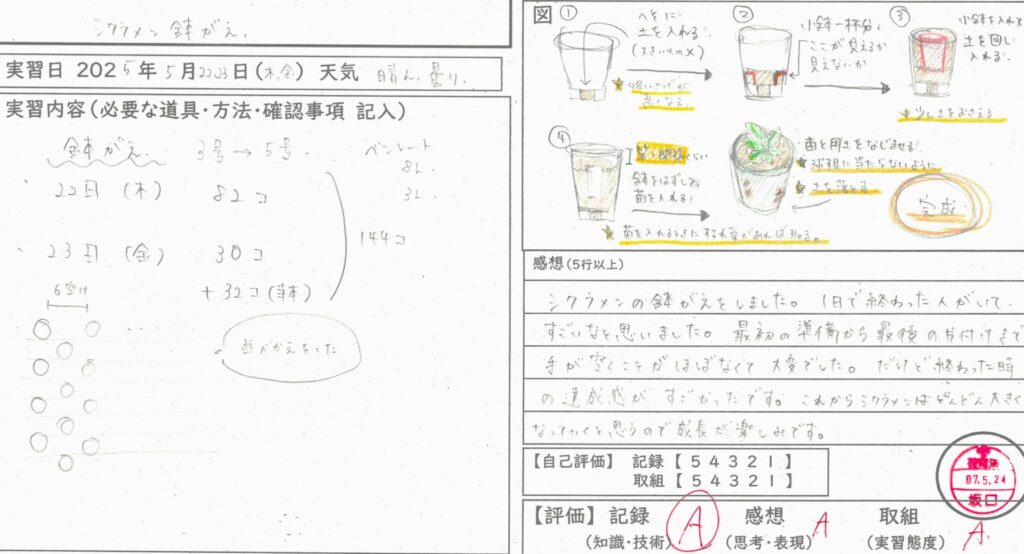 シクラメン 鉢がえ.
実習日 2025年 5月22.23日(木,金) 天気 晴れ. 曇り.
実習内容(必要な道具・方法・確認事項 記入)
鉢がえ. 3号→5号.
ベンレート
8L.
3L.
22日 (木) 82コ
23日 (金) 30コ
+32コ
144コ
6空け
並べかえをした
図
①
土を入れる。
(大きいもの×)
②
小鉢一杯分。
ここが見えるか
見えないか
③
小鉢を入れる
土を回し
入れる。
★少し土をおさえる
④
くらい
鉢をはずして
苗を入れる。
★苗を入れるときに枯れ葉があれば取る。
苗と用土をなじませる。
★球根に当たらないように
★土を落とす
完成
感想(5行以上)
シクラメンの鉢がえをしました。1日で終わった人がいて、
すごいなと思いました。最初の準備から最後の片付けまで
手が空くことがほぼなくて大変でした。だけど終わった時
の達成感がすごかったです。これからシクラメンはどんどん大きく
なっていくと思うので成長が楽しみです。
【自己評価】 記録【 5 4 3 2 1 】
取組【 5 4 3 2 1 】
07.5.24
坂口
【評価】記録 A 感想 A 取組 A
(知識・技術) (思考・表現) (実習態度)